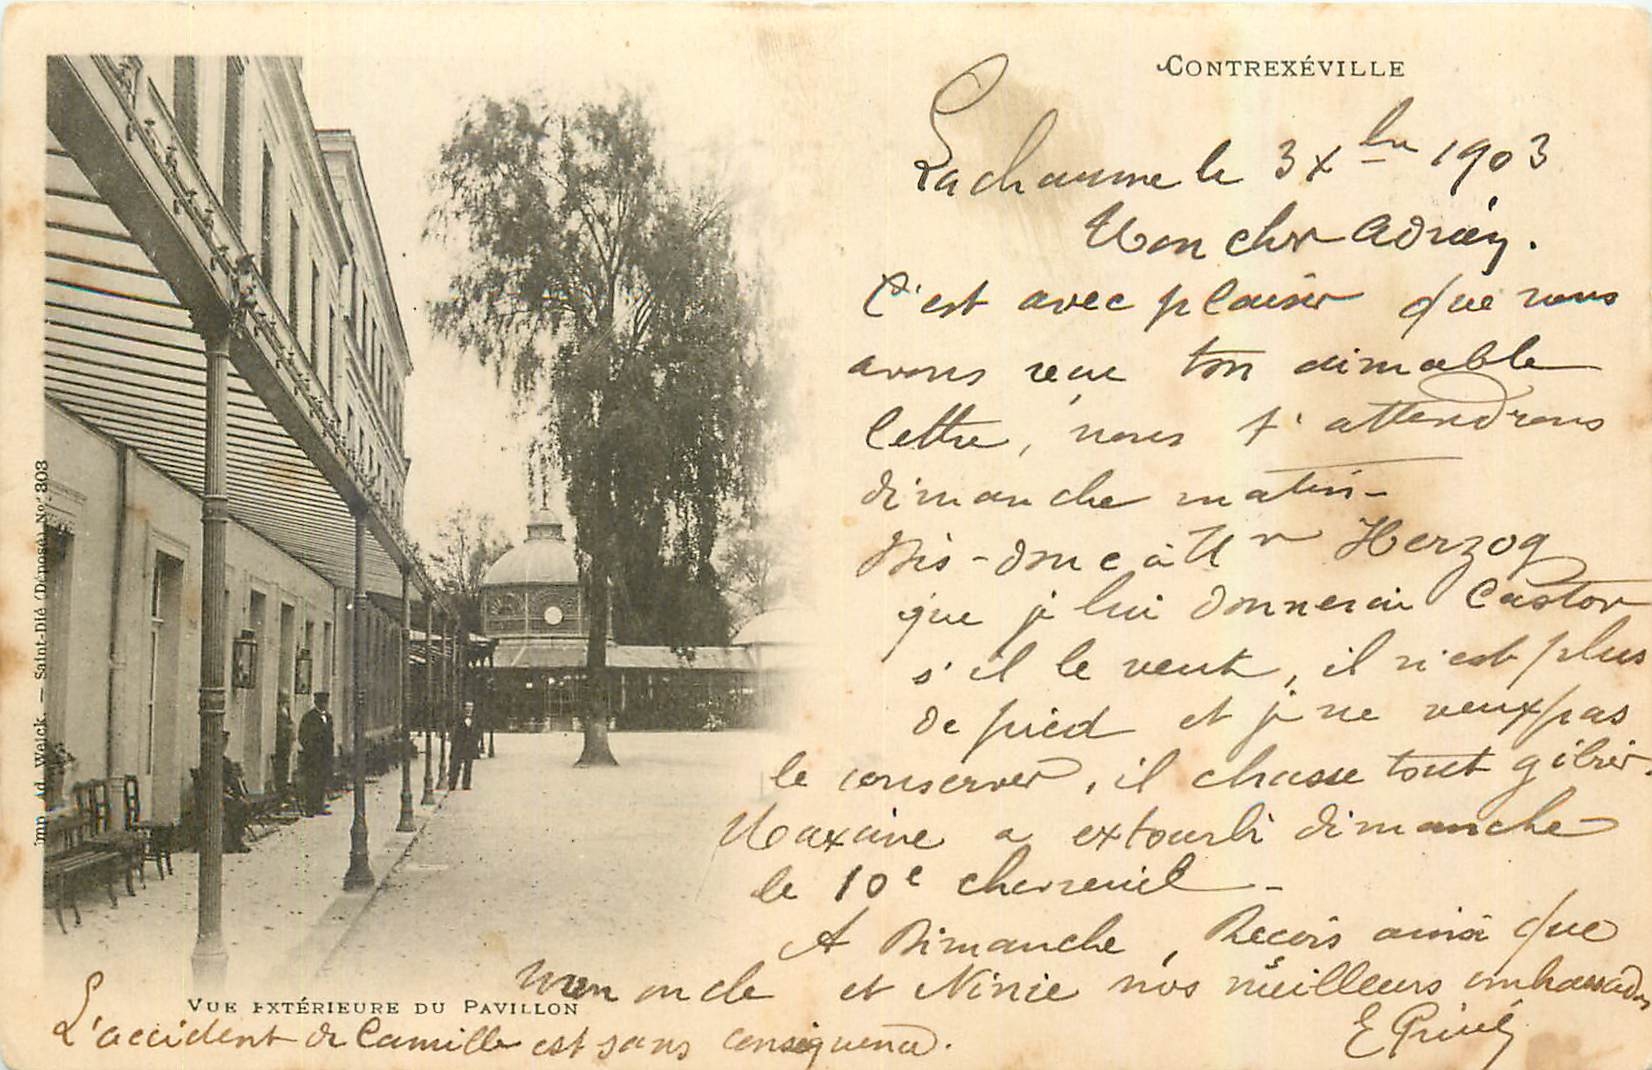 CONTREXÉVILLE
Lachaume le 3 Xbre 1903
Mon cher Adrien.
C'est avec plaisir que nous
avons reçu ton aimable
lettre, nous t'attendrons
dimanche matin -
Dis-donc à Mr Herzog
que je lui donnerai Castor
s'il le veut, il n'est plus
de pied et je ne veux pas
le conserver, il chasse tout gibier.
a dimanche
le 10e chevreuil -
A Dimanche, Reçois ainsi que
mon oncle et Ninie nos meilleurs embrassades
E
L'accident de Camille est sans conséquence.
VUE EXTÉRIEURE DU PAVILLON
Imp. Ad. Weick. — Saint-Dié (Déposé) No. 303